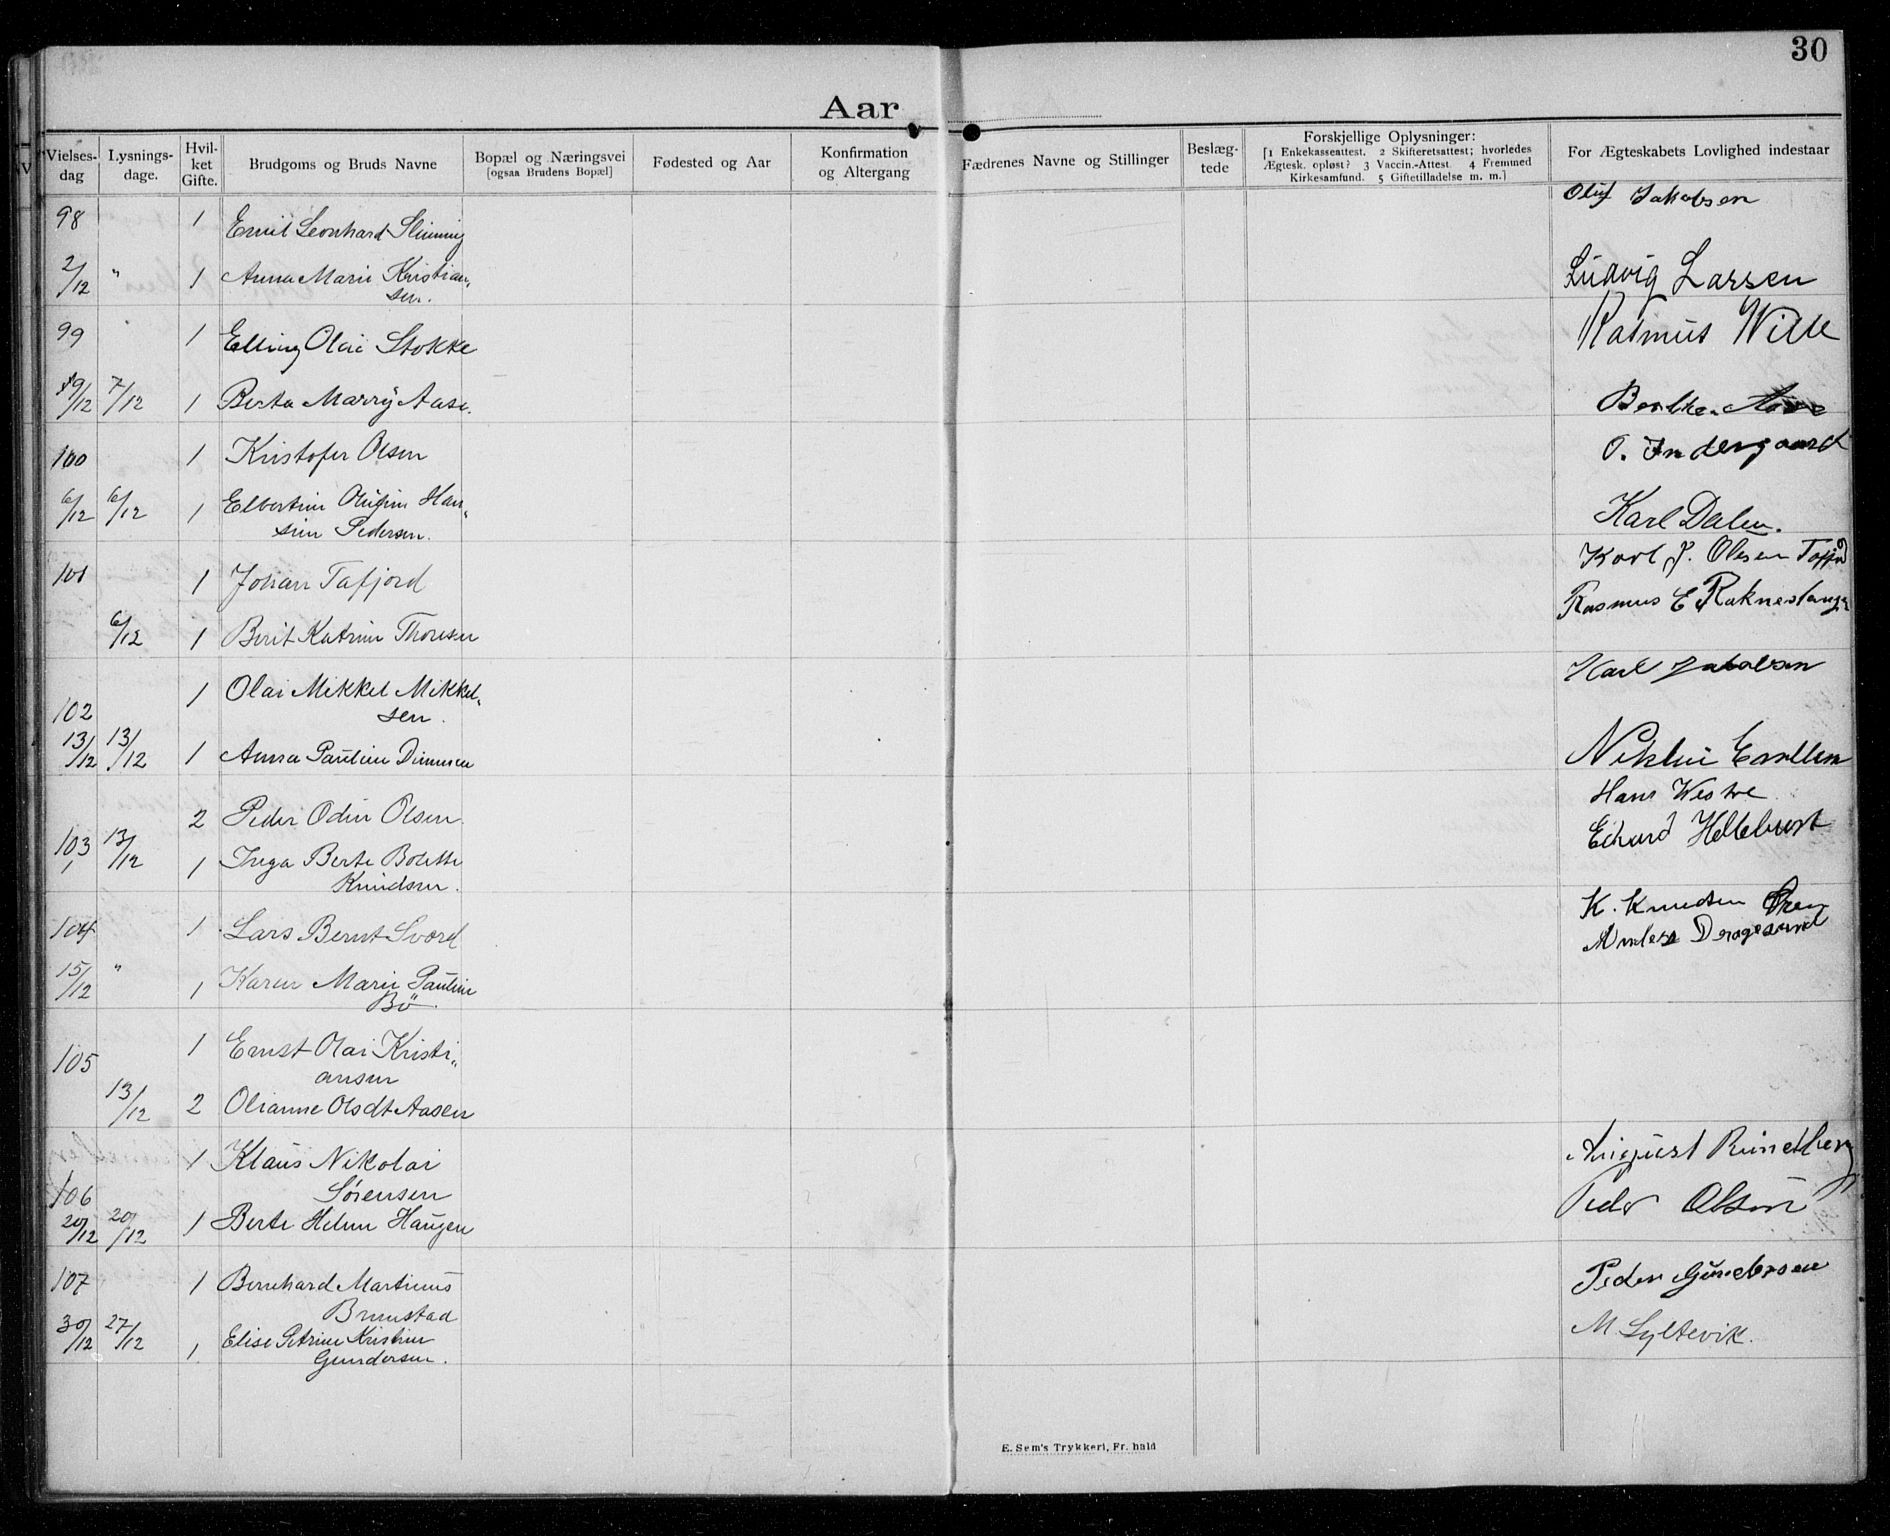 30
Aar
Vielses-dag
Lysnings-dage.
Hvil-ket Gifte.
Brudgoms og Bruds Navne
Bopæl og Næringsvei
[ogsaa Brudens Bopæl]
Fødested og Aar
Konfirmation
og Altergang
Fædrenes Navne og Stillinger
Beslæg-
tede
Forskjellige Oplysninger:
[1 Enkekasseattest. 2 Skifteretsattest; hvorledes
Ægtesk. opløst? 3 Vaccin.-Attest. 4 Fremmed
Kirkesamfund. 5 Giftetilladelse m. m.]
For Ægteskabets Lovlighed indestaar
98 1 Emil Leonhard Slinning
Oluf Jakobsen
2/12 " 1 Anna Marie Kristian-
sen.
Ludvig Larsen
99 1 Elling Olai Stokke
Rasmus Wiik
19/12 7/12 1 Berta Marry Aase.
100 1 Kristofer Olsen
O. Indergaard
6/12 6/12 1 Elbertine Han-
sine Pedersen.
Karl Dalen.
101 1 Johan Tafjord
Karl J. Olsen Tafjord
Rasmus E Raknestange
6/12 1 Berit Katrine Thoresen
102 1 Olai Mikkel Mikkel-
sen.
Karl Jakobsen
13/12 13/12 1 Anna Pauline Dimmen
103 13/12 2 Peder Odin Olsen.
Hans Westre
1 Inga Berte Bolette
Knudsen.
Edvard Hellebust
104 1 Lars Bernt Svord
K. Knudsen
Anders Dragesund
15/12 " 1 Karen Marie Pauline
Bö.
105 1 Ernst Olai Kristi-
ansen
13/12 2 Olianne Olsdt Aasen
106 1 Klaus Nikolai
Sørensen
August
20/12 20/12 1 Berte Heline Haugen
Peder Olsen
107 1 Bernhard Martinus
Brunstad
Peder Gundersen
30/12 27/12 1. Elise Petrine Kristine
Gundersen.
M. Syltevik.
E. Sem's Trykkeri, Fr. hald